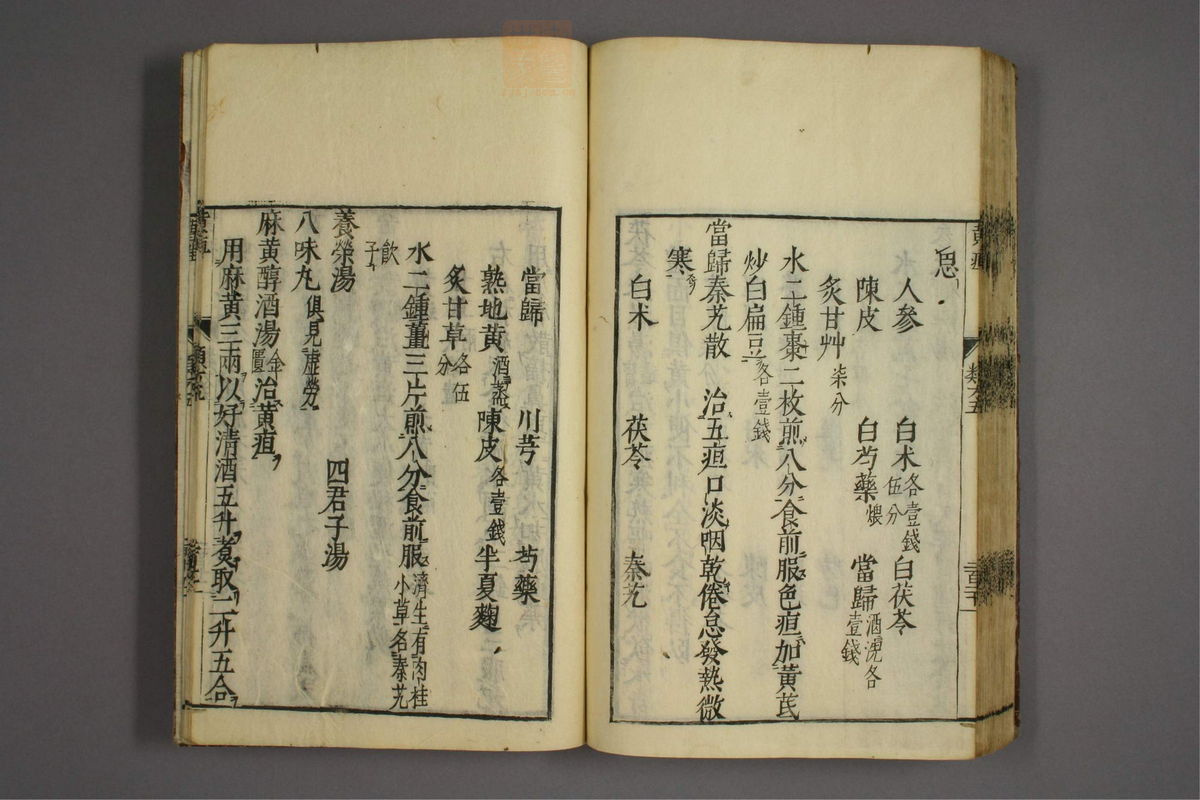 思
人參 白朮各壹錢伍分 白茯苓
陳皮 白芍藥煨 當歸酒洗各壹錢
炙甘艸柒分
水二鍾棗二枚煎八分食前服色疸加黃芪
炒白扁豆各壹錢
當歸秦艽散 治五疸口淡咽乾倦怠發熱微
寒
白朮 茯苓 秦艽
當歸 川芎 芍藥
熟地黃酒蒸 陳皮各壹錢 半夏麹
炙甘草各伍分
水二鍾薑三片煎八分食前服濟生有肉桂小草名秦艽
飲子
養榮湯 四君子湯
八味丸俱見虛勞
麻黃醇酒湯金匱治黃疸
用麻黃三兩以好清酒五升煮取二升五合